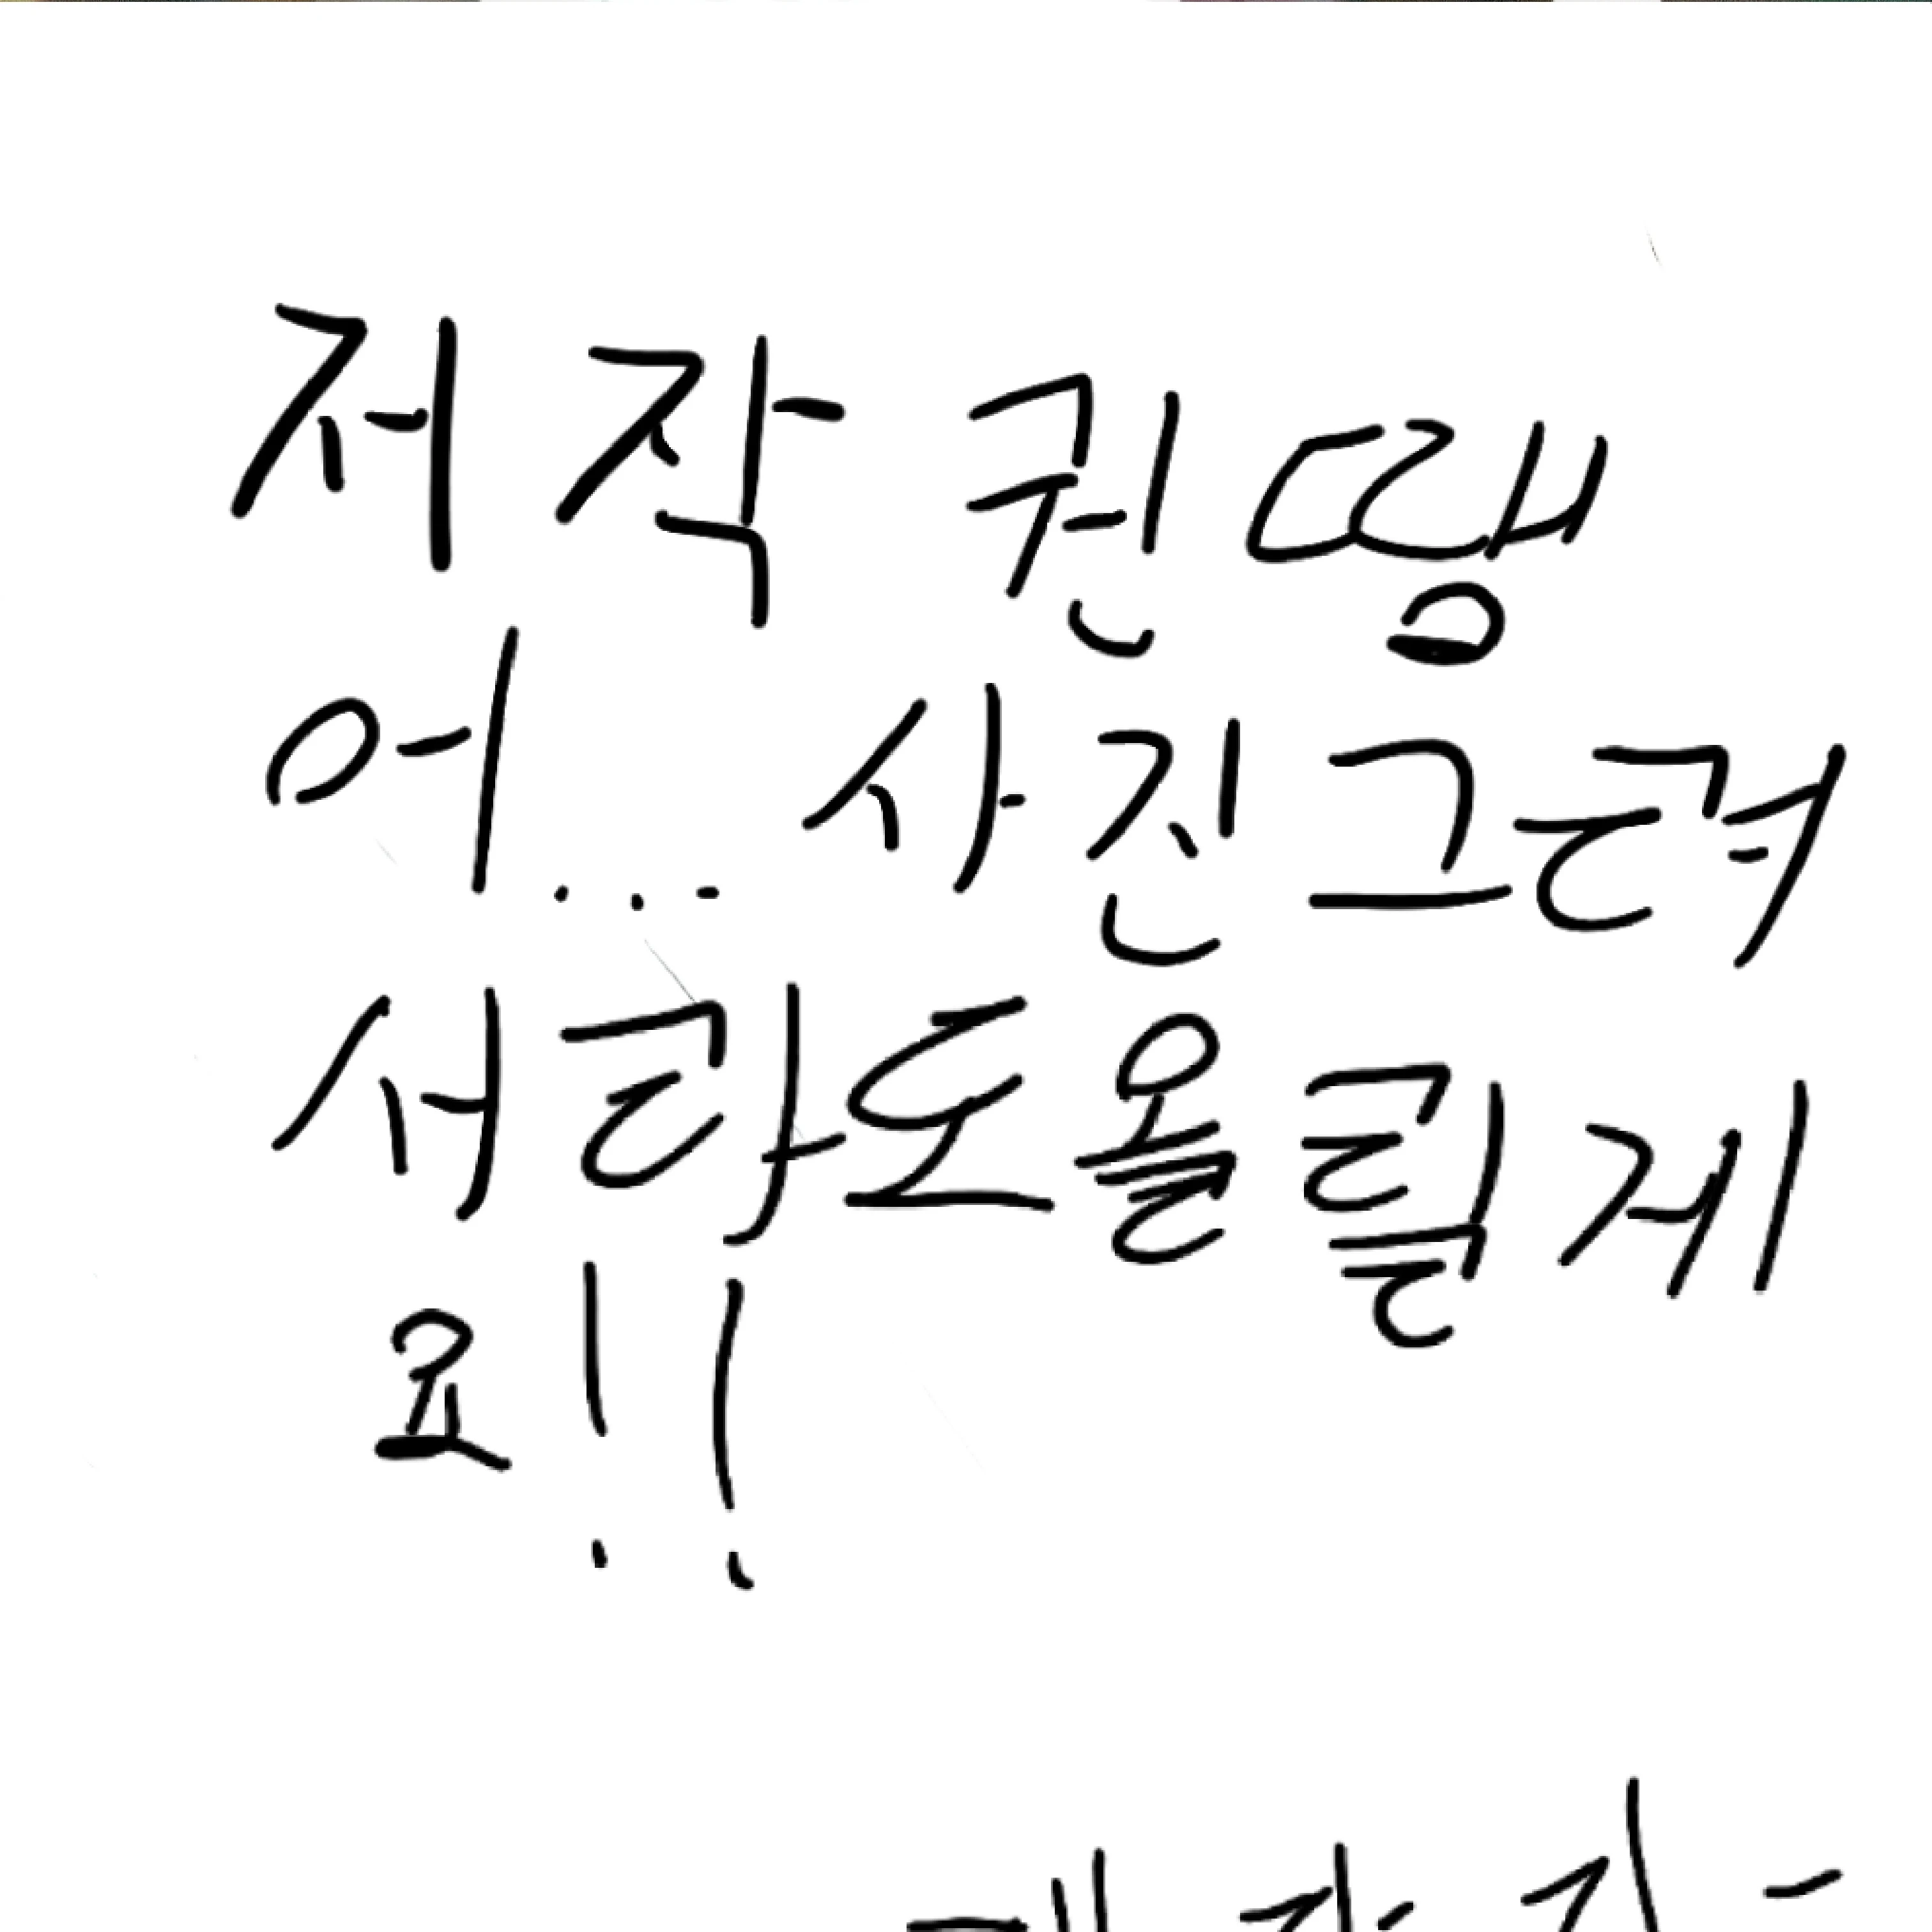 저작권땜
어... 사진그려
서라도올릴게
요!!